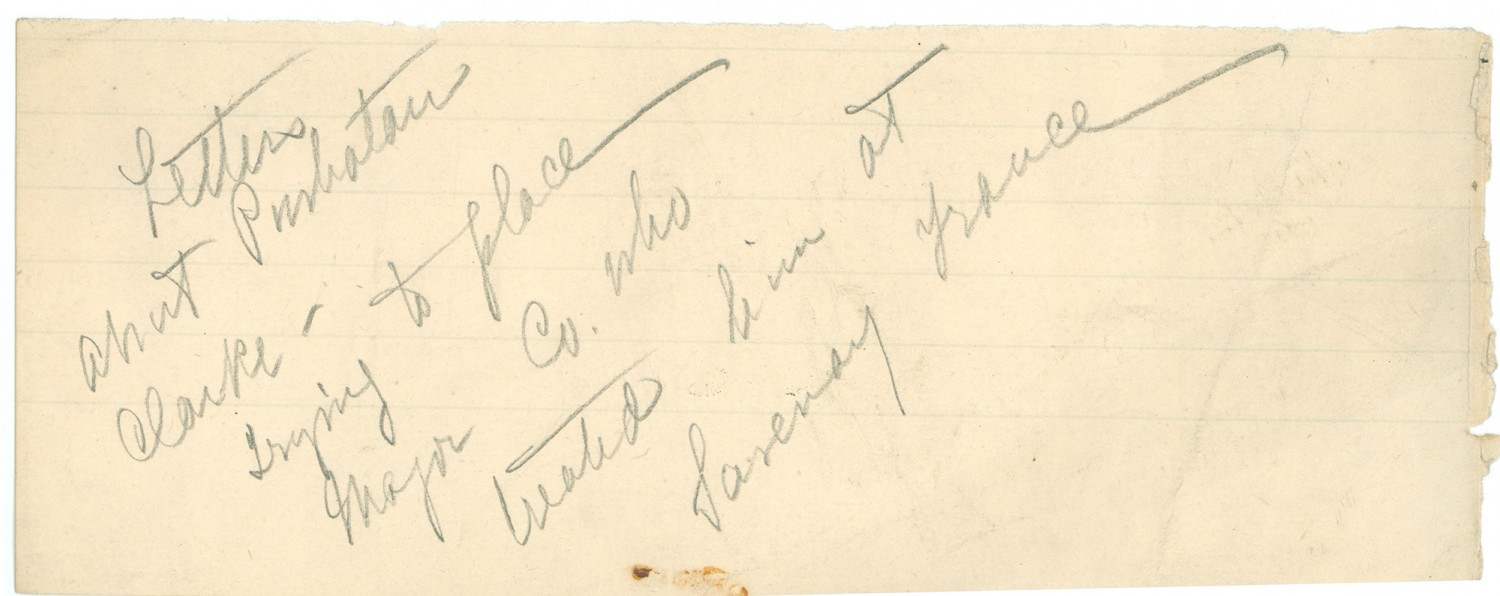 Letters
about Powhatan
Clarke -
Trying to place
Major Co. who
treated him at
Savenay France